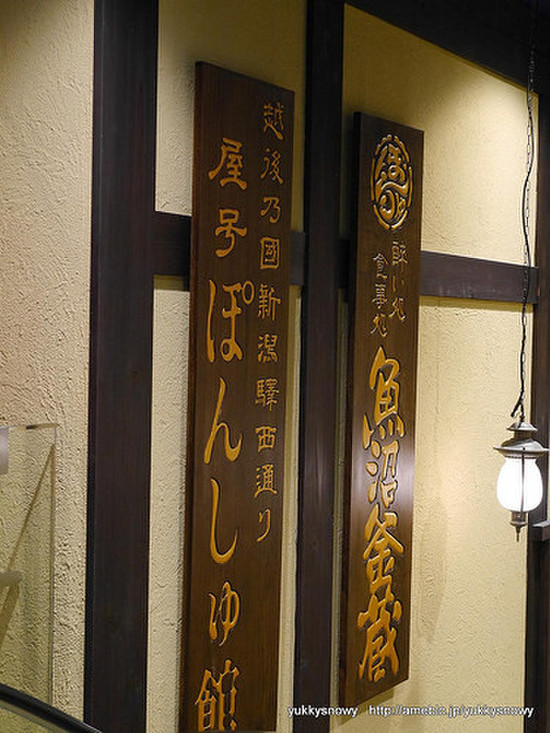 越後乃國新潟驛西通り
屋号ぽんしゅ館
酔い処
食事処
魚沼釜蔵
yukkysnowy http://ameblo.jp/yukkysnowy